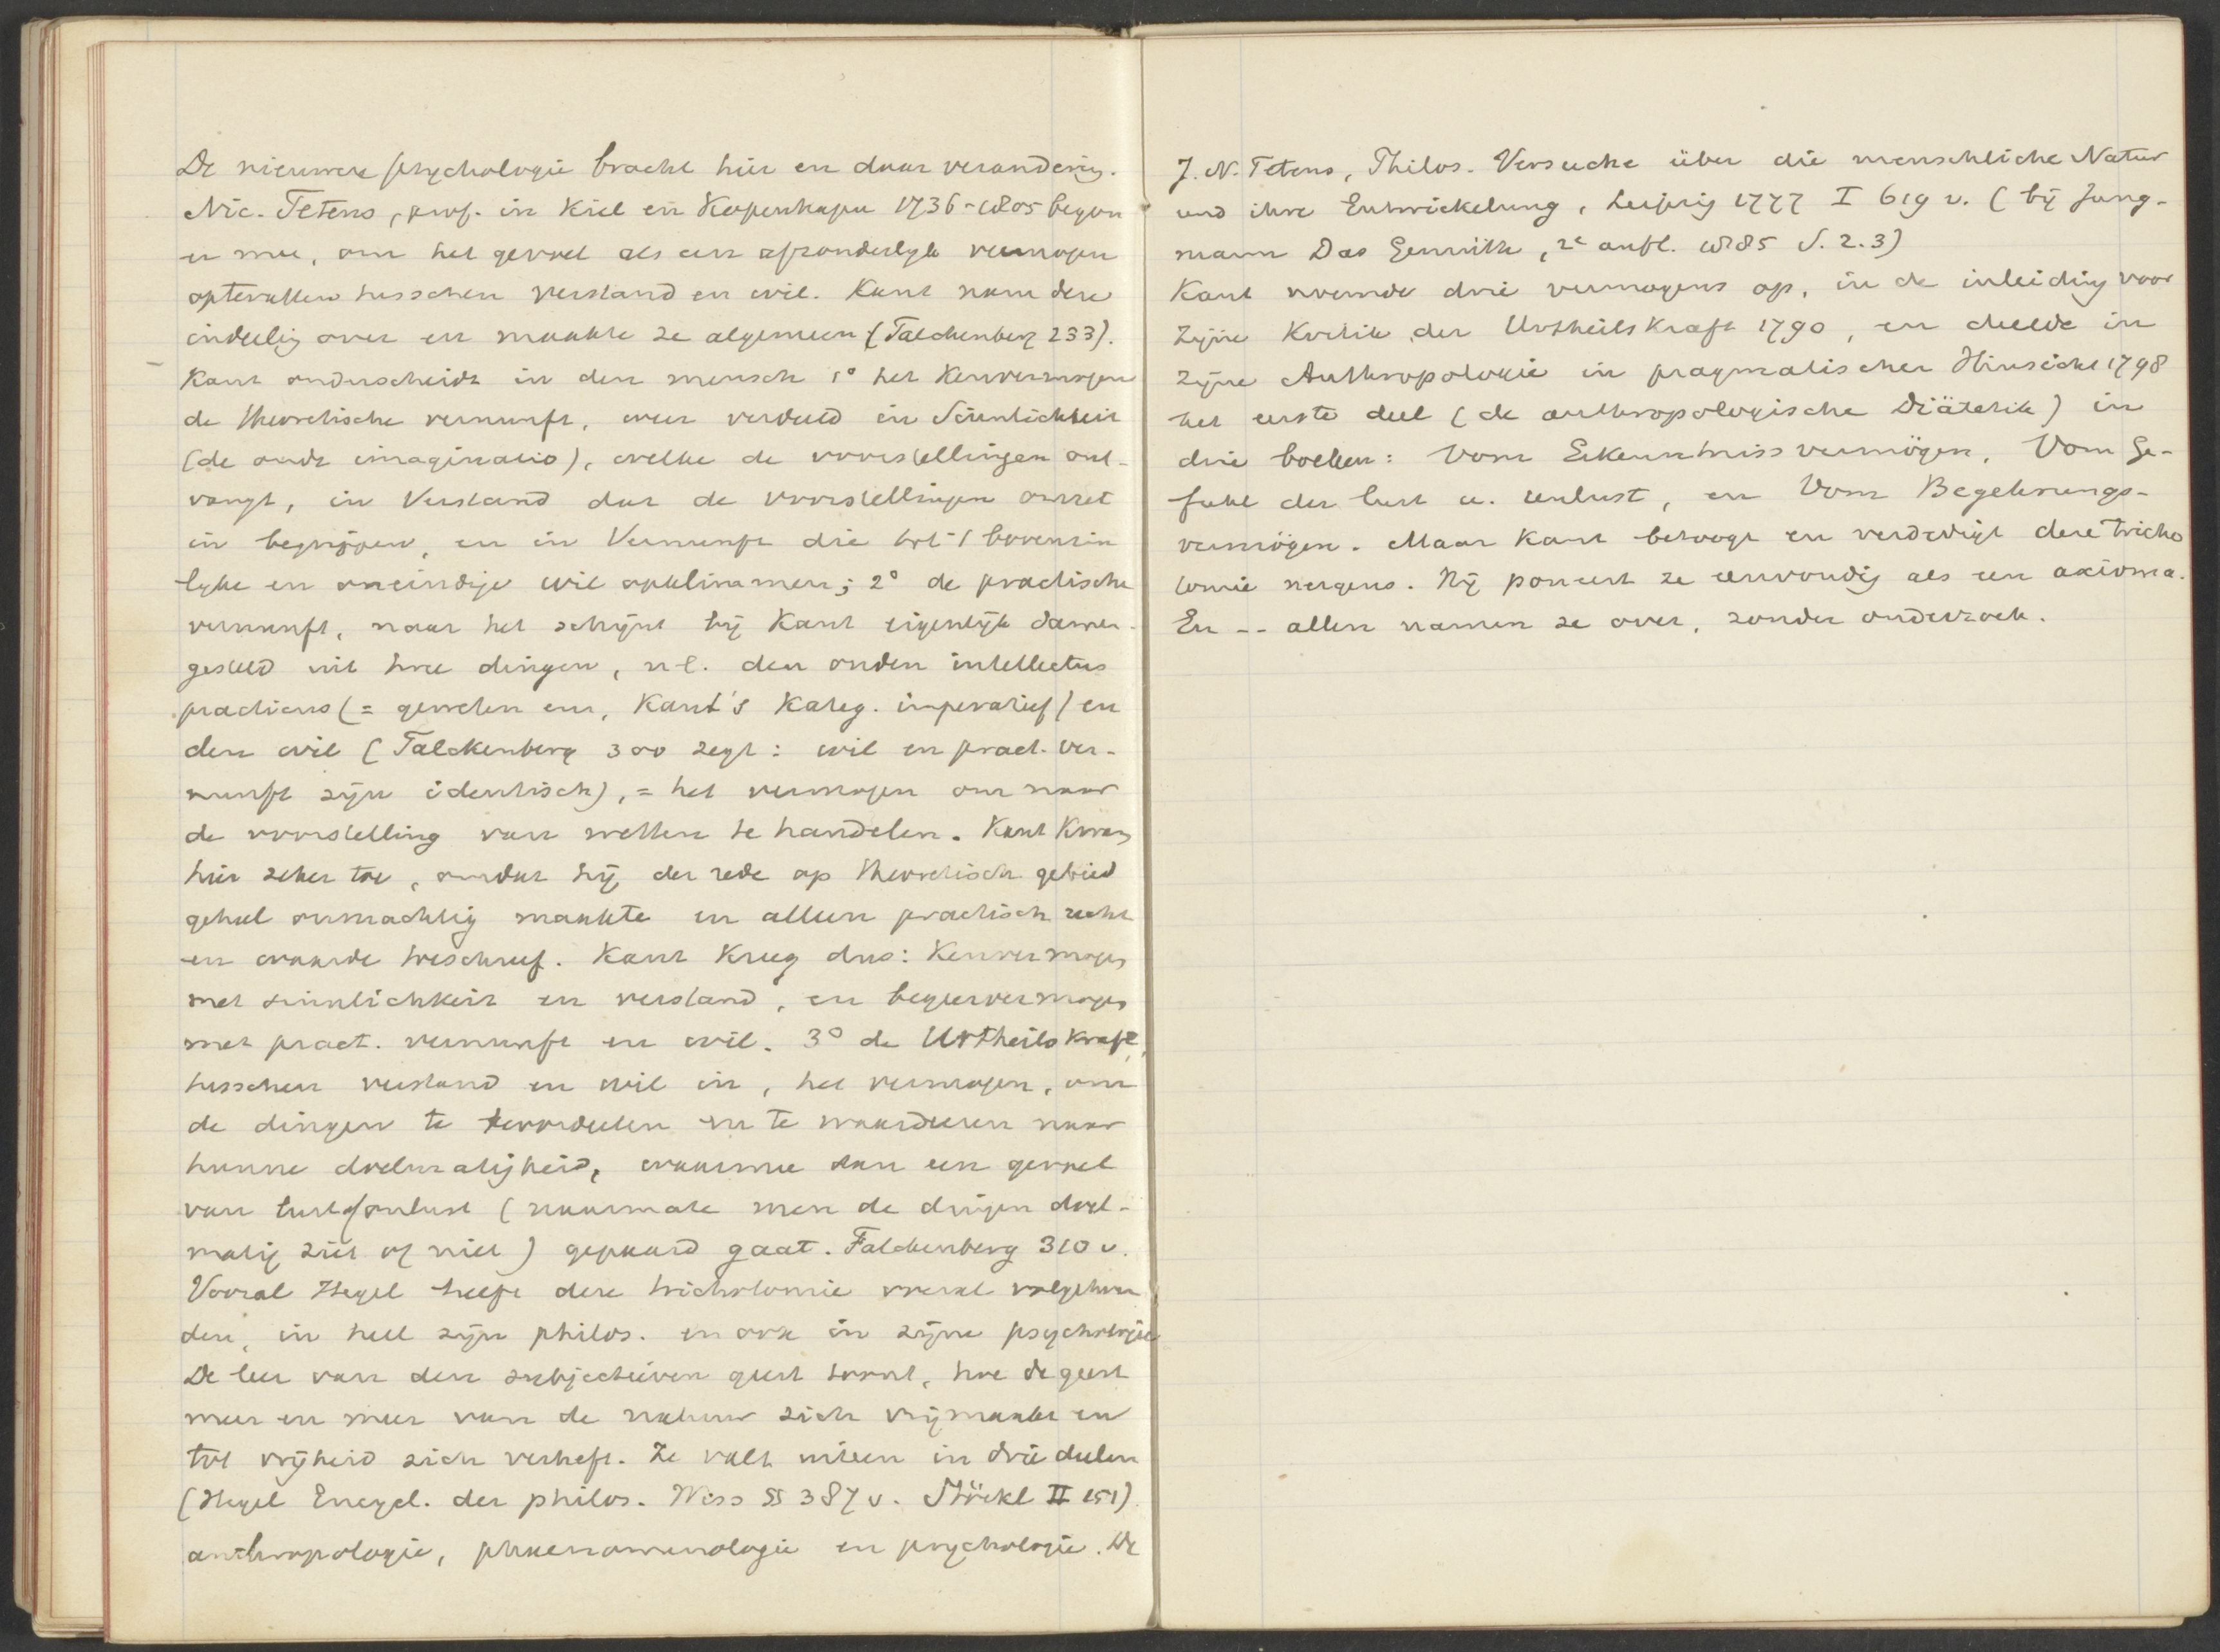 De nieuwere psychologie bracht hier en daar verandering.
Nic. Tetens, prof. in Kiel en Kopenhagen 1736-1805 begon
er mee, om het gevoel als een afzonderlijk vermogen
optevatten tusschen verstand en wil. Kant nam deze
indeeling over en maakte ze algemeen (Falckenberg 233).
Kant onderscheidt in den mensch 1° het Kenvermogen
de theoretische vernunft, weer verdeeld in Sinnlichkeit
(de oude imaginatio), welke de voorstellingen ont-
vangt, in Verstand dat de voorstellingen omzet
in begrippen, en in Vernunft die tot 't bovenzin
lijke en oneindige wil opklimmen; 2° de practische
vernunft, naar het schijnt bij Kant eigenlijk samen-
gesteld uit twee dingen, n.l. den ouden intellectus
practicus (= geweten enz, Kant's Kateg. imperatief) en
den wil (Falckenberg 300 zegt: wil en pract. Ver-
nunft zijn identisch), = het vermogen om naar
de voorstelling van wetten te handelen. Kant kwam
hier zeker toe, omdat hij der rede op theoretisch gebied
geheel onmachtig maakte en alleen practisch recht
en waarde toeschreef. Kant kreeg dus: Kenvermogen
met sinnlichkeit en verstand, en begeervermogen
met pract. vernunft en wil. 3° de Urtheilskraft,
tusschen verstand en wil in, het vermogen, om
de dingen te beoordeelen en te waardeeren naar
hunne doelmatigheid, waarmee dan een gevoel
van lust of onlust (naarmate men de dingen doel-
matig ziet of niet) gepaard gaat. Falckenberg 310 v.
Vooral Hegel heeft deze trichotomie overal volgehou
den, in heel zijn philos. en ook in zijne psychologie
De leer van den subjectieven geest toont, hoe de geest
meer en meer van de natuur zich vrijmaakt en
tot vrijheid zich verheft. Ze valt uiteen in drie deelen
(Hegel Encycl. der philos. Wiss §§ 387 v. Stöckl II 151)
anthropologie, phaenomenologie en psychologie. De
J. N. Tetens, Philos. Versuche über die menschliche Natur
und ihre Entwickelung, Leipzig 1777 I 619 v. (bij Jung-
mann Das Gemüth, 2e aufl. 1885 S. 2.3)
Kant noemde drie vermogens op, in de inleiding voor
zijne Kritik der Urtheilskraft 1790, en deelde in
zijne Anthropologie in pragmatischer Hinsicht 1798
het eerste deel (de anthropologische Diätetik) in
drie boeken: Vom Erkenntnissvermögen, Vom Ge-
fühl der lust u. unlust, en Vom Begehrungs-
vermögen. Maar Kant betoogt en verdedigt deze tricho
tomie nergens. Hij poneert ze eenvoudig als een axioma.
En -- allen namen ze over, zonder onderzoek.